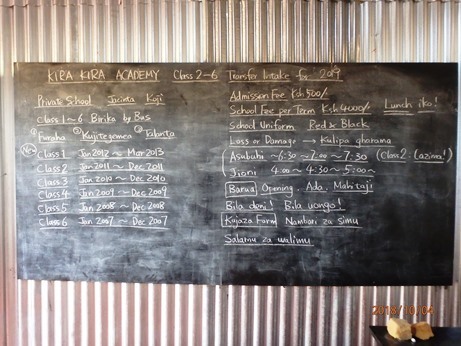 KIRA KIRA ACADEMY Class 2~6 Transfer Intake for 2019
Private School Jacinta Koji
Class 1~6 Birika by Bus
① Furaha ② Kujitegemea ③ Talanta
New
Class 1 Jan 2012 ~ Mar 2013
Class 2 Jan 2011 ~ Dec 2011
Class 3 Jan 2010 ~ Dec 2010
Class 4 Jan 2009 ~ Dec 2009
Class 5 Jan 2008 ~ Dec 2008
Class 6 Jan 2007 ~ Dec 2007
Admission Fee Ksh 500/-
School Fee per Term Ksh 4000/- Lunch iko!
School Uniform Red & Black
Loss or Damage → Kulipa gharama
Asubuhi ~6:30 ~7:00 ~7:30 (Class 2: Lazima!)
Jioni 4:00 ~ 4:30 ~ 5:00 ~
Barua Opening Ada, Mahitaji
Bila deni! Bila uongo!
Kujaza Form Nambari za simu
Salamu za walimu
2018/10/04